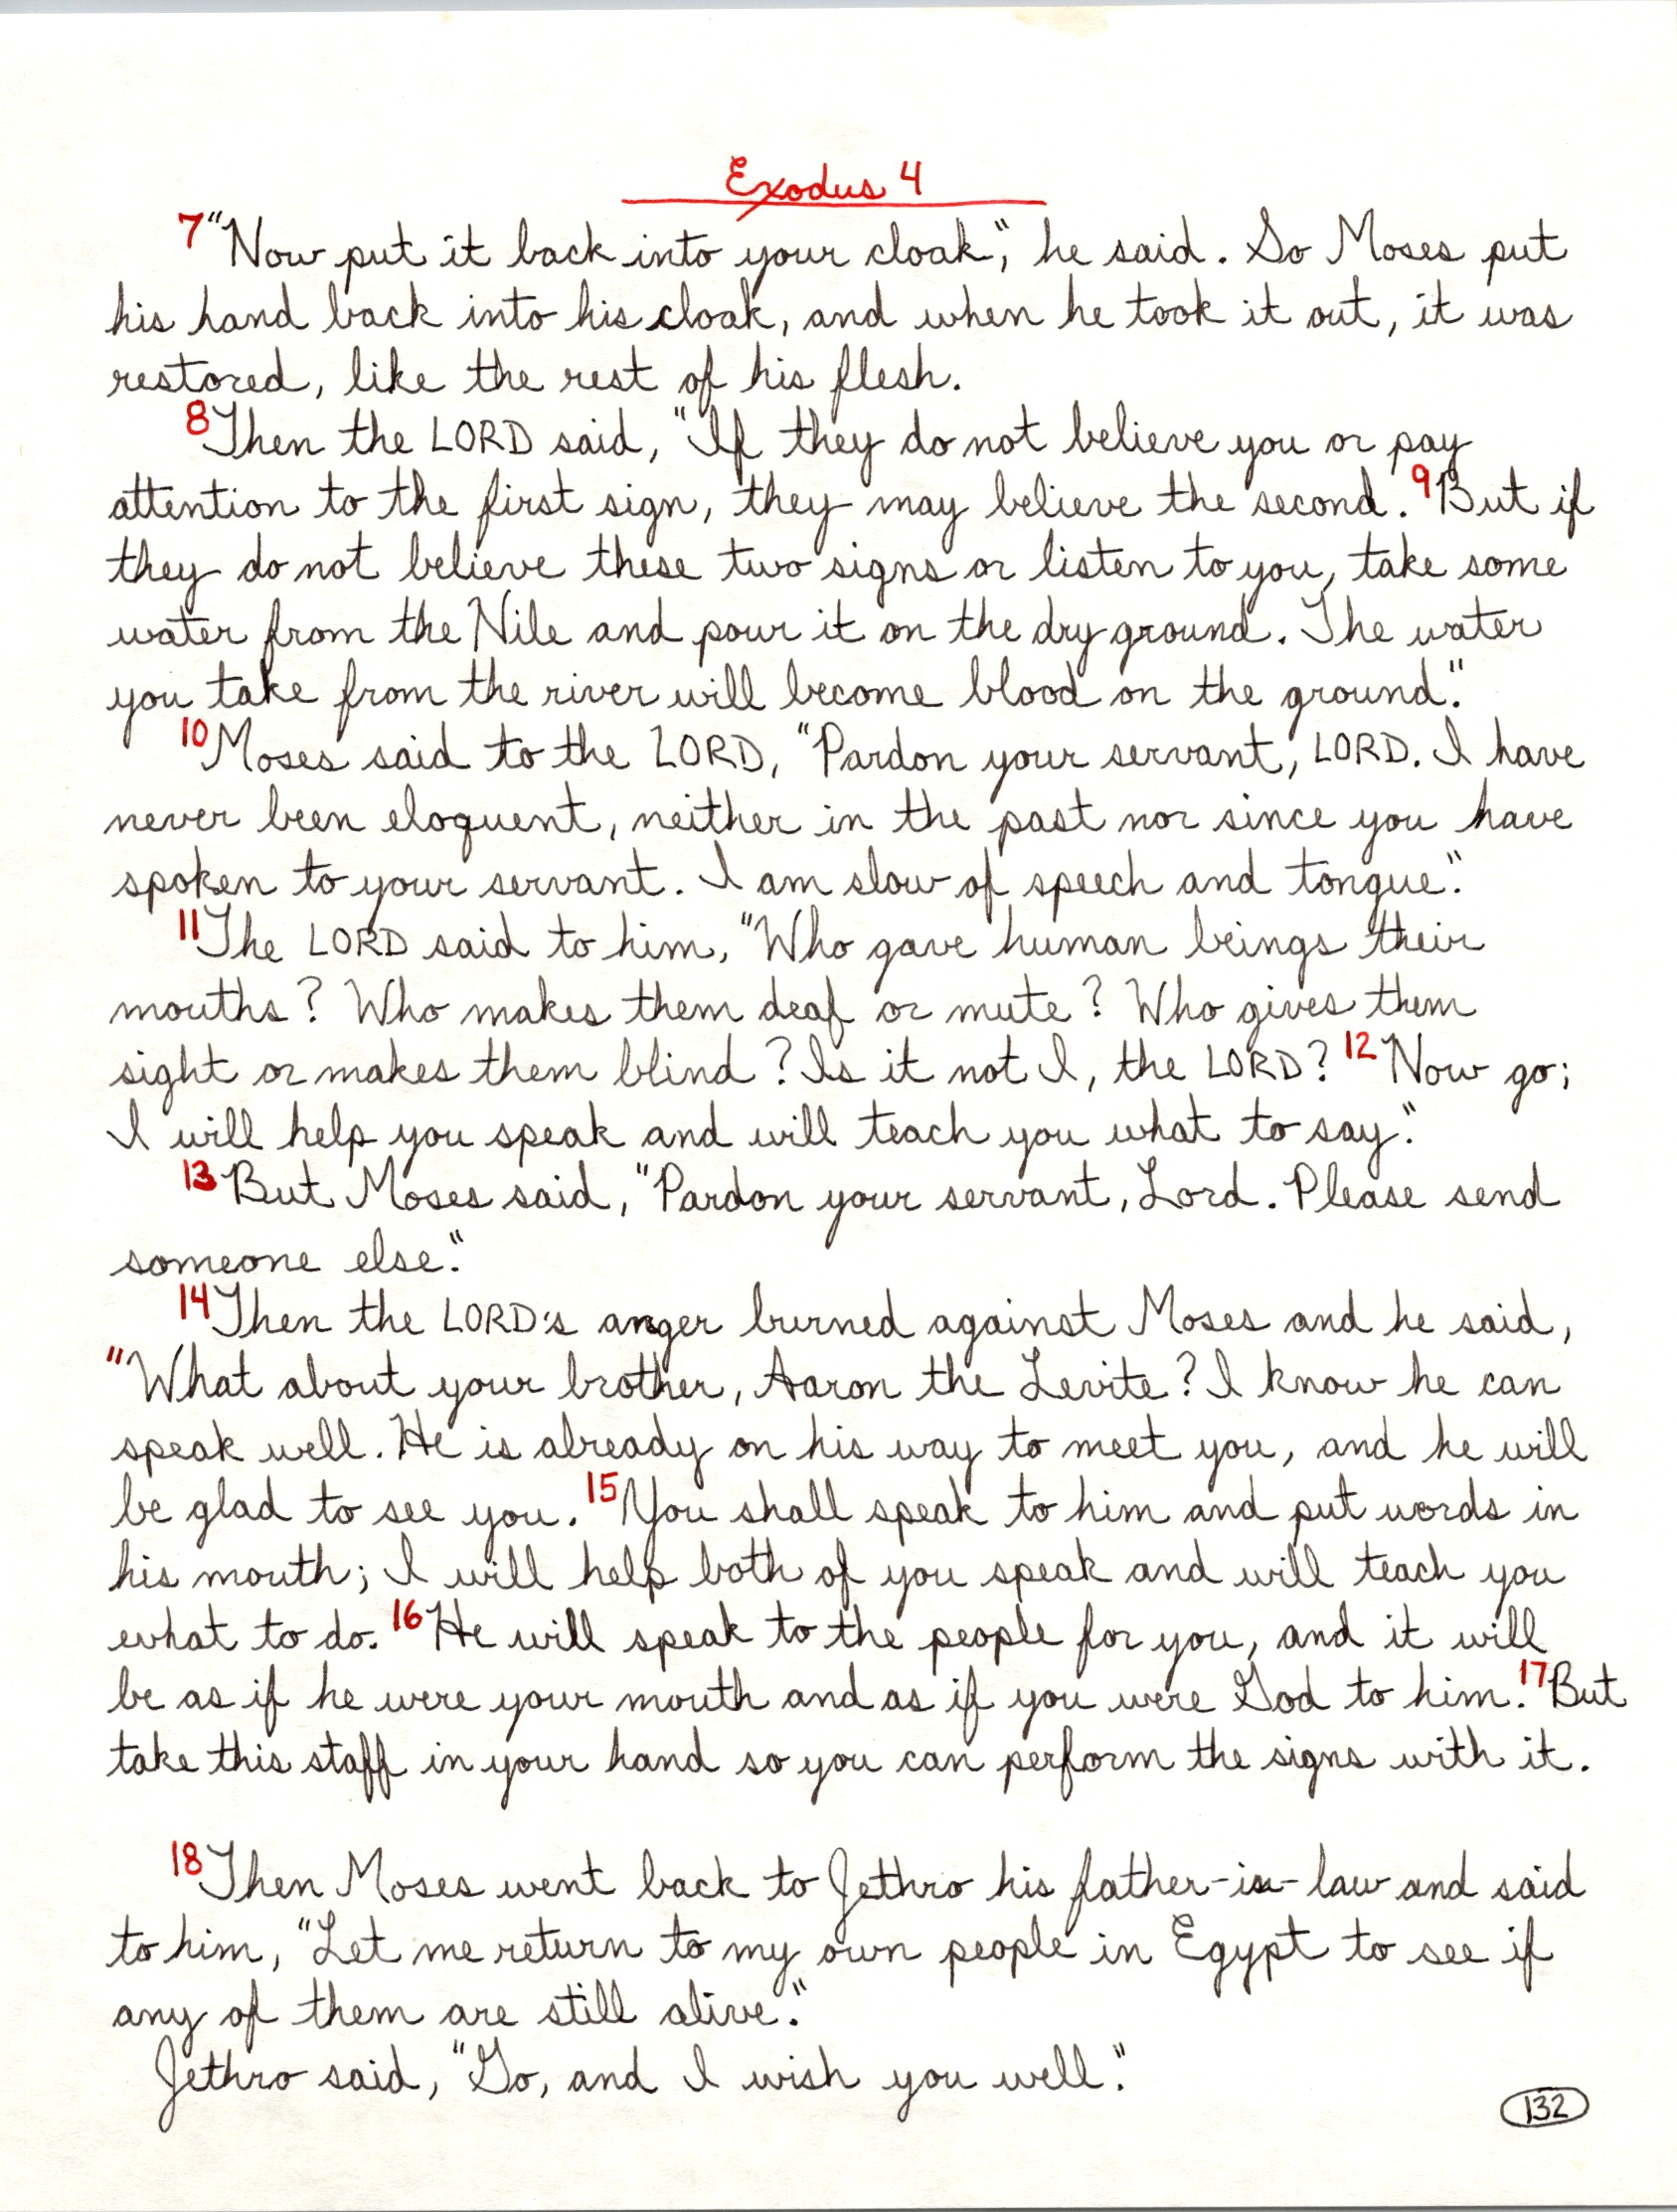 Exodus 4
7 "Now put it back into your cloak," he said. So Moses put
his hand back into his cloak, and when he took it out, it was
restored, like the rest of his flesh.
8 Then the LORD said, "If they do not believe you or pay
attention to the first sign, they may believe the second. 9 But if
they do not believe these two signs or listen to you, take some
water from the Nile and pour it on the dry ground. The water
you take from the river will become blood on the ground."
10 Moses said to the LORD, "Pardon your servant, LORD. I have
never been eloquent, neither in the past nor since you have
spoken to your servant. I am slow of speech and tongue."
11 The LORD said to him, "Who gave human beings their
mouths? Who makes them deaf or mute? Who gives them
sight or makes them blind? Is it not I, the LORD? 12 Now go;
I will help you speak and will teach you what to say."
13 But Moses said, "Pardon your servant, Lord. Please send
someone else."
14 Then the LORD's anger burned against Moses and he said,
"What about your brother, Aaron the Levite? I know he can
speak well. He is already on his way to meet you, and he will
be glad to see you. 15 You shall speak to him and put words in
his mouth; I will help both of you speak and will teach you
what to do. 16 He will speak to the people for you, and it will
be as if he were your mouth and as if you were God to him. 17 But
take this staff in your hand so you can perform the signs with it.
18 Then Moses went back to Jethro his father-in-law and said
to him, "Let me return to my own people in Egypt to see if
any of them are still alive."
Jethro said, "Go, and I wish you well."
132